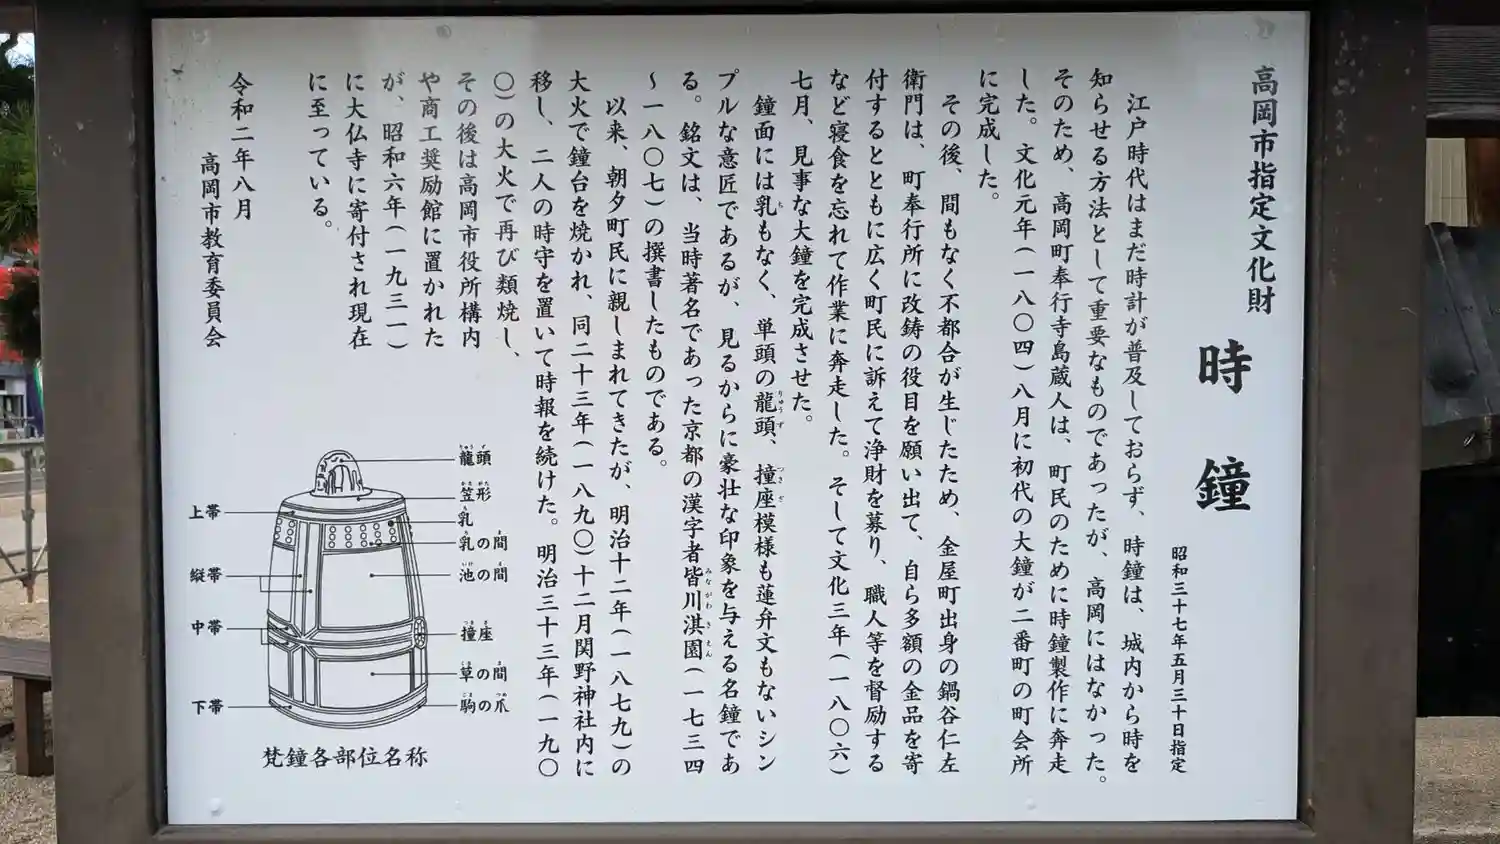 高岡市指定文化財
時鐘
昭和三十七年五月三十日指定
江戸時代はまだ時計が普及しておらず、時鐘は、城内から時を
知らせる方法として重要なものであったが、高岡にはなかった。
そのため、高岡町奉行寺島蔵人は、町民のために時鐘製作に奔走
した。文化元年(一八〇四)八月に初代の大鐘が二番町の町会所
に完成した。
その後、間もなく不都合が生じたため、金屋町出身の鍋谷仁左
衛門は、町奉行所に改鋳の役目を願い出て、自ら多額の金品を寄
付するとともに広く町民に訴えて浄財を募り、職人等を督励する
など寝食を忘れて作業に奔走した。そして文化三年(一八〇六)
七月、見事な大鐘を完成させた。
鐘面には乳もなく、単頭の龍頭、撞座模様も蓮弁文もないシン
プルな意匠であるが、見るからに豪壮な印象を与える名鐘であ
る。銘文は、当時著名であった京都の漢字者皆川淇園(一七三四
～一八〇七)の撰書したものである。
以来、朝夕町民に親しまれてきたが、明治十二年(一八七九)の
大火で鐘台を焼かれ、同二十三年(一八九〇)十二月関野神社内に
移し、二人の時守を置いて時報を続けた。明治三十三年(一九〇
〇)の大火で再び類焼し、
その後は高岡市役所構内
や商工奨励館に置かれた
が、昭和六年(一九三一)
に大仏寺に寄付され現在
に至っている。
令和二年八月
高岡市教育委員会
龍頭
笠形
乳
乳の間
池の間
撞座
草の間
駒の爪
上帯
縦帯
中帯
下帯
梵鐘各部位名称